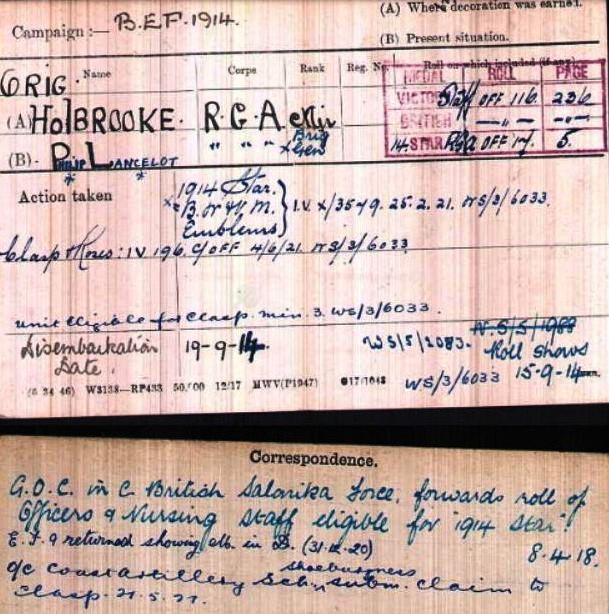 (A) Where decoration was earned.
Campaign :— B.E.F. 1914.
(B) Present situation.
Name Corps Rank Reg. No. Roll on which included (if any).
MEDAL ROLL PAGE
ORIG.
VICTORY Staff OFF 116. 236
(A) HOLBROOKE. R.G.A
BRITISH —„— —„—
Brig
Gen
14 STAR RGA OFF 5.
(B) - Philip LANCELOT " " "
Action taken
1914 Star.
B.W & V.M. I.V. x/3579. 25.2.21. WS/3/6033.
Emblems
Clasp & Roses: IV 196. C/OFF 4/6/21. WS/3/6033
Unit eligible for Clasp. min. 3. WS/3/6033.
Disembarkation 19-9-14 WS/5/2083. Roll shows
Date. WS/3/6033 15-9-14
(6 34 46) W3138—RP433 50,000 12/17 HWV(P1947)
Correspondence.
G.O.C. in C British Salonika Force, forwards roll of
Officers & Nursing Staff eligible for "1914 Star".
E.F. 9 returned showing (31.12.20) 8.4.18.
Shoeburyness
O/c Coast Artillery Sch., subm. claim to
clasp. 21.5.21.